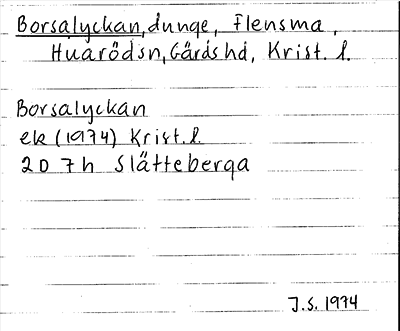 Borsalyckan, dunge, Flensma,
Huarödsn, Gärds hd, Krist. l.
Borsalyckan
ek (1974) Krist. l.
2 D 7 h Slätteberga
J.S. 1974